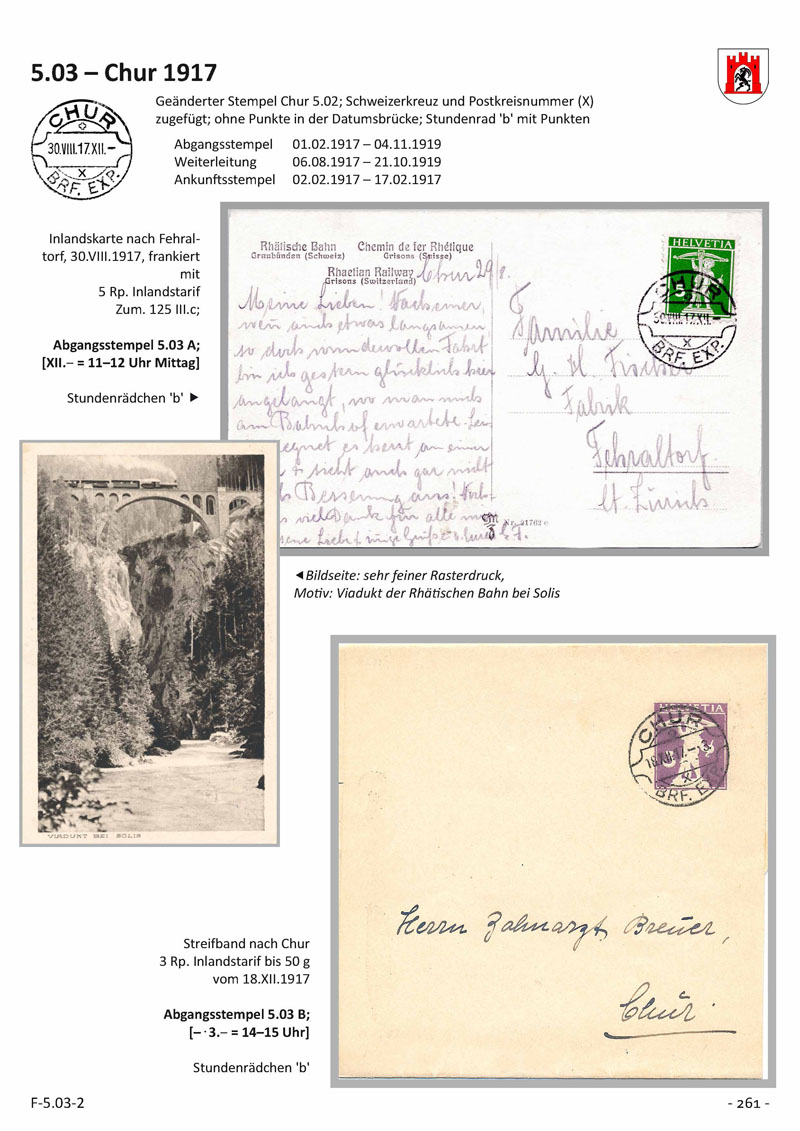 5.03 – Chur 1917
Geänderter Stempel Chur 5.02; Schweizerkreuz und Postkreisnummer (X)
zugefügt; ohne Punkte in der Datumsbrücke; Stundenrad 'b' mit Punkten
CHUR
30.VIII.17.XII.–
X
BRF. EXP.
Abgangsstempel 01.02.1917 – 04.11.1919
Weiterleitung 06.08.1917 – 21.10.1919
Ankunftsstempel 02.02.1917 – 17.02.1917
Inlandskarte nach Fehral-
torf, 30.VIII.1917, frankiert
mit
5 Rp. Inlandstarif
Zum. 125 III.c;
Abgangsstempel 5.03 A;
[XII.– = 11–12 Uhr Mittag]
Stundenrädchen 'b' ►
Rhätische Bahn Chemin de fer Rhétique
Graubünden (Schweiz) Grisons (Suisse)
Rhaetian Railway
Grisons (Switzerland)
Chur 29/8.
Meine Lieben! Nach einer,
wenn auch etwas langsamen
so doch wundervollen Fahrt
bin ich gestern glücklich hier
angelangt, wo man mich
am Bahnhof erwartete.
regnet es heut an einer
sieht auch gar nicht
Besserung aus!
viel Dank für alle
Nr. 21762 c
HELVETIA
5
CHUR
30.VIII.17.XII.–
X
BRF. EXP.
Familie
G. H. Fischer
Fabrik
Fehraltorf.
Ct. Zürich
VIADUKT BEI SOLIS
◄Bildseite: sehr feiner Rasterdruck,
Motiv: Viadukt der Rhätischen Bahn bei Solis
HELVETIA
CHUR
18.XII.17.–·3.
X
BRF. EXP.
Herrn Zahnarzt Breuer,
Chur.
Streifband nach Chur
3 Rp. Inlandstarif bis 50 g
vom 18.XII.1917
Abgangsstempel 5.03 B;
[–·3.– = 14–15 Uhr]
Stundenrädchen 'b'
F-5.03-2
- 261 -